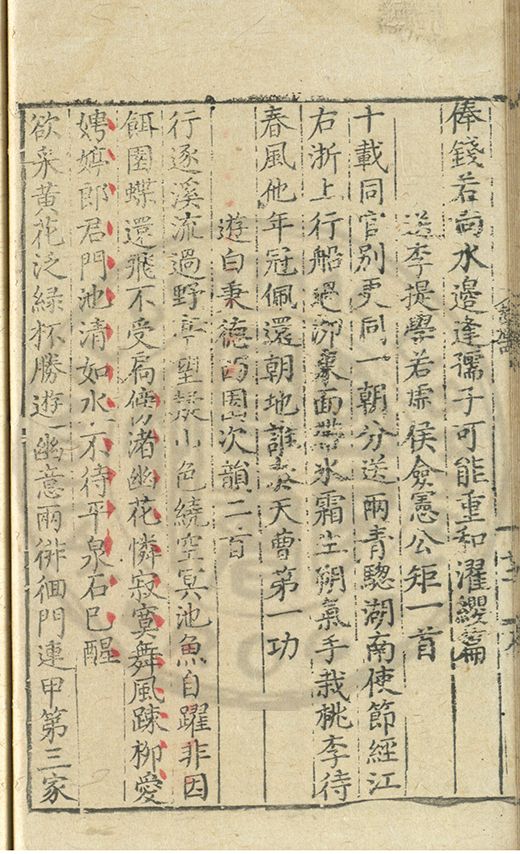 俸錢若向水邊逢孺子可能重和濯纓篇
送李提學若虛侯僉憲公矩一首
十載同官別更同一朝分送兩青驄湖南使節經江
右浙上行船過面帶氷霜生朔氣手栽桃李待
春風他年冠佩還朝地誰天曹第一功
遊白秉德西園次韻二首
行逐溪流過野亭望山色繞空冥池魚自躍非因
餌園蝶還飛不受扃傍渚幽花憐寂寞舞風踈柳愛
娉婷郎君門池清如水不待平泉石已醒
欲采黃花泛綠杯勝遊幽意兩徘徊門連甲第三家